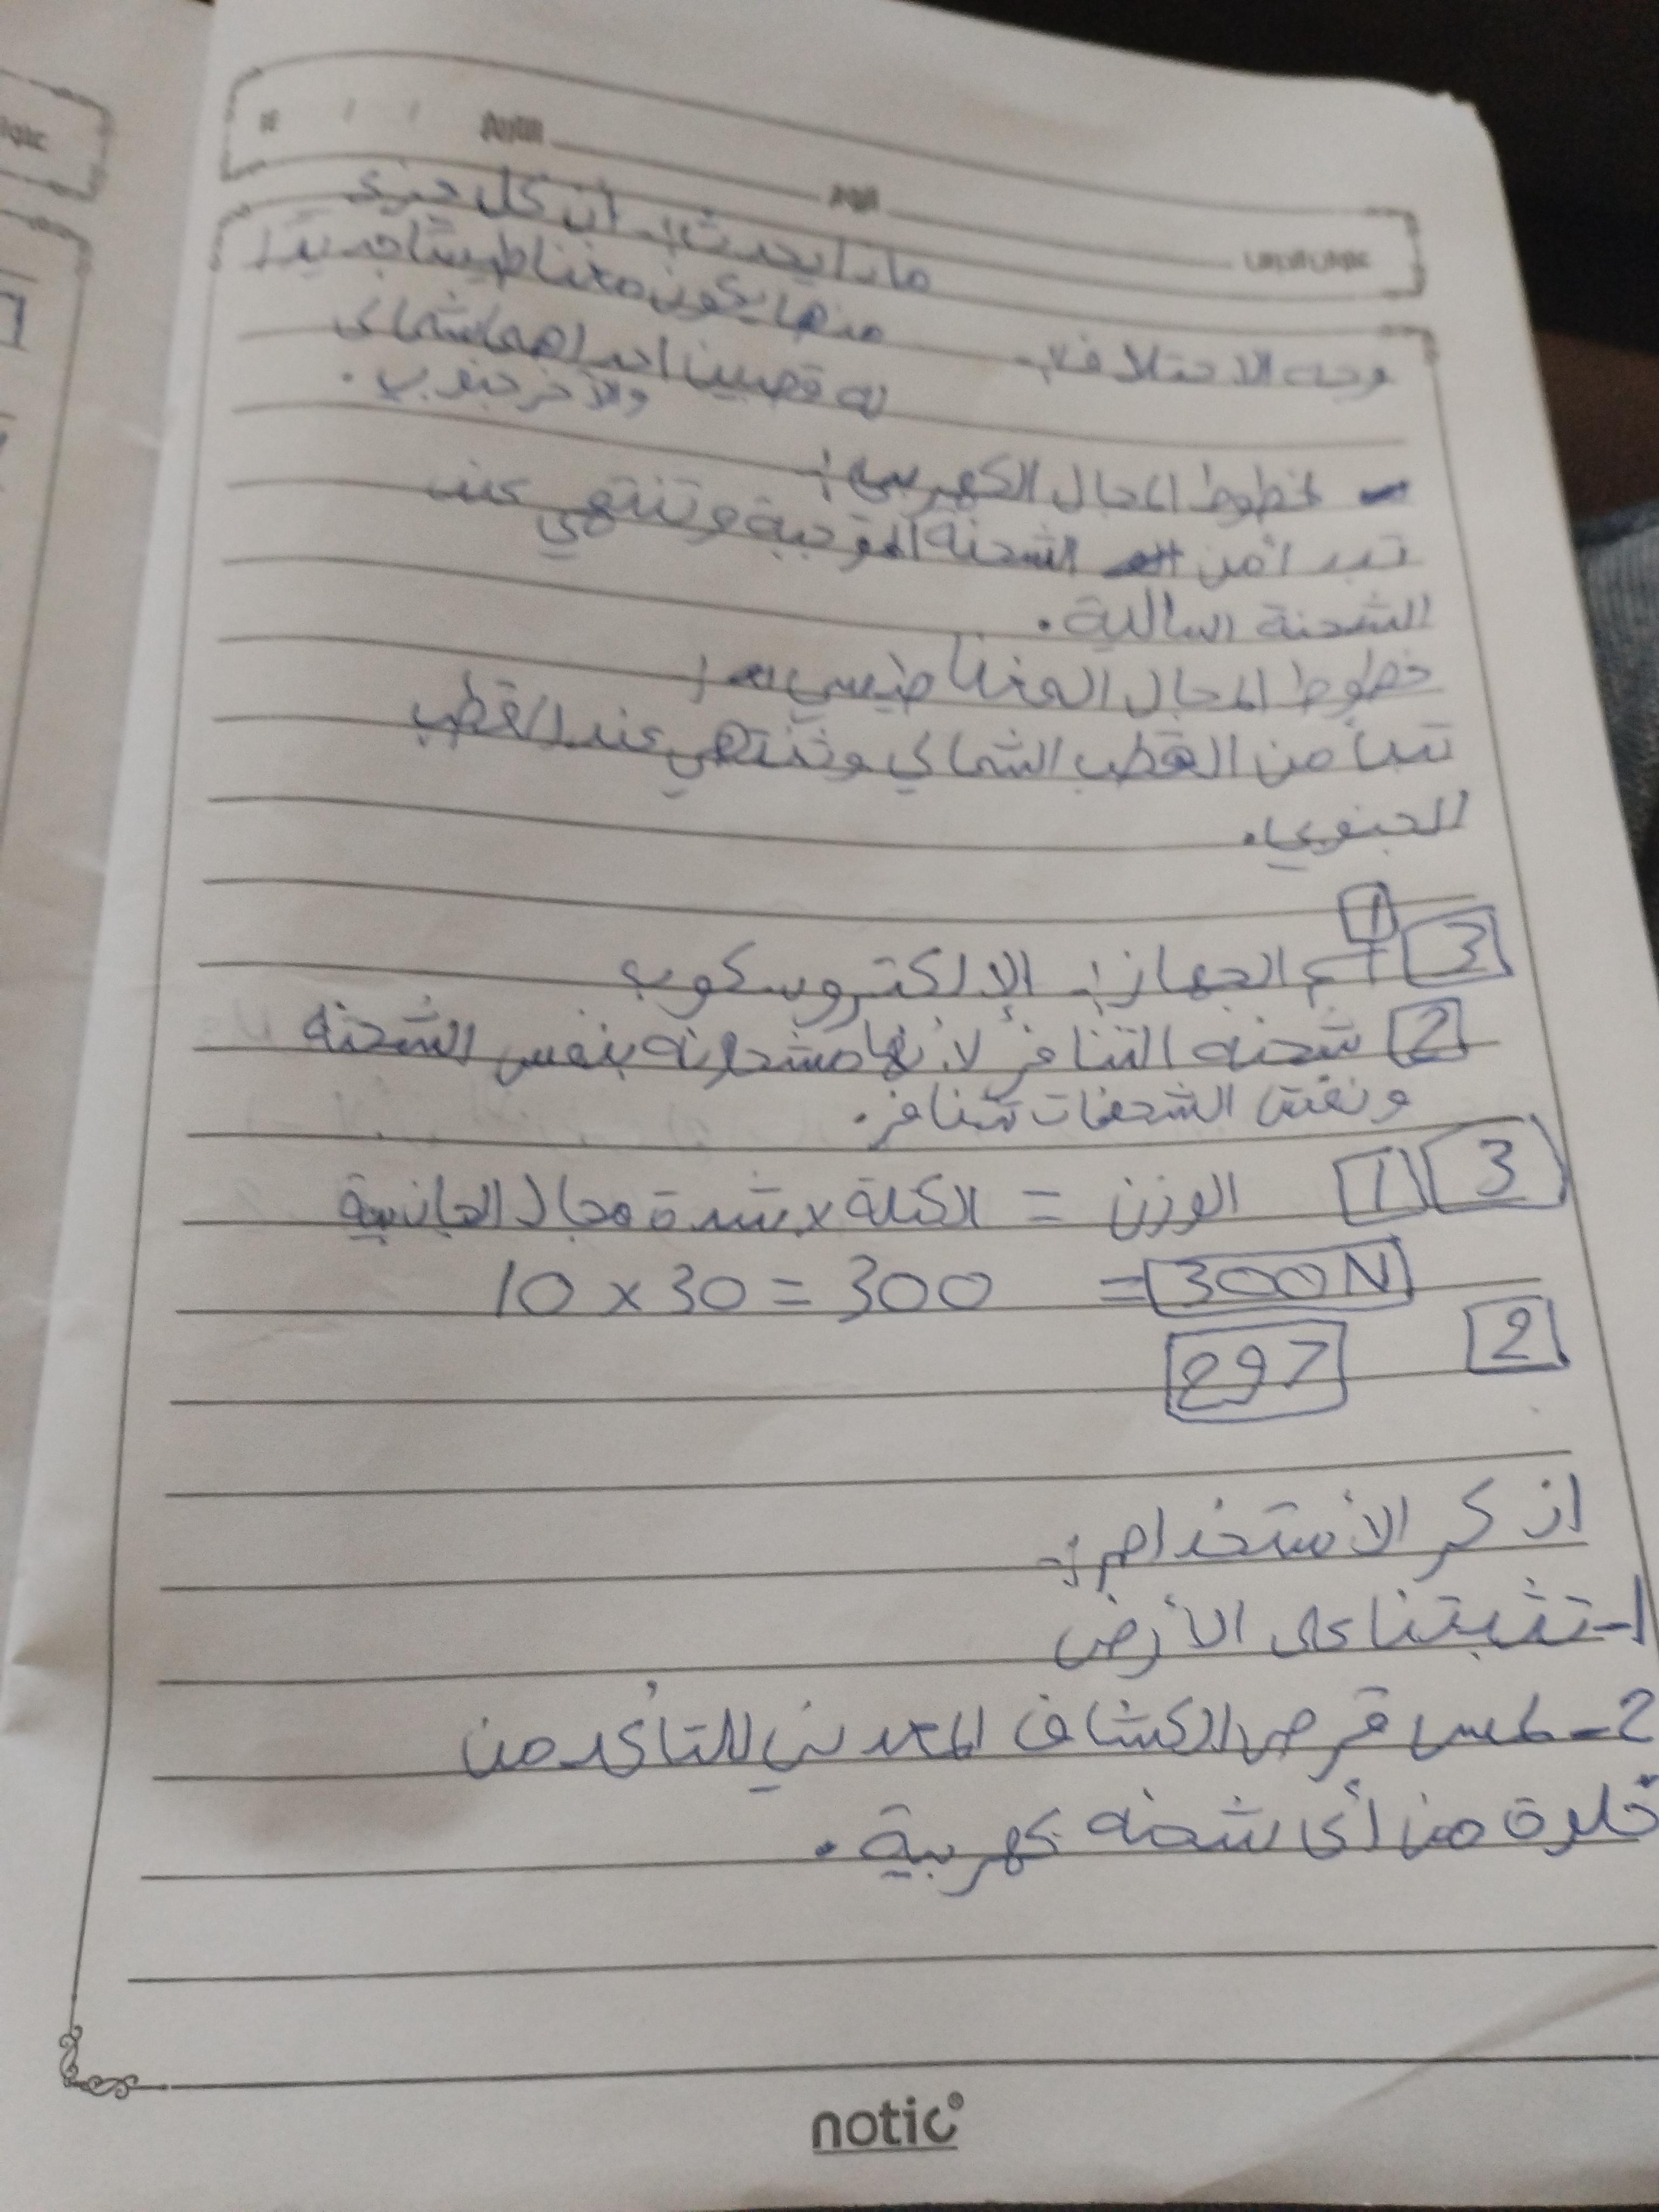 التاريخ / / ١٤
اليوم
عنوان الدرس
ماذا يحدث :- أن كل جزء
منها يكون مغناطيسًا جديدًا
وجه الاختلاف :-
له قطبين احداهما شمالى
والآخر جنوبي .
- خطوط المجال الكهربي :
تبدأ من الشحنة الموجبة وتنتهي عند
الشحنة السالبة .
خطوط المجال المغناطيسي :
تبدأ من القطب الشمالي وتنتهي عند القطب
الجنوبي .
3 1 اسم الجهاز :- الإلكتروسكوب
2 شحنه التنافر لأنها مشحونه بنفس الشحنه
ونفس الشحنات تتنافر .
3 1 الوزن = الكتلة × شدة مجال الجاذبية
10 × 30 = 300 = 300N
2 297
اذكر الأستخدام :-
1- تثبتنا على الأرض
2- لمس قرص الكشاف المعدني للتأكد من
خلوة من أى شحنه كهربية .
notic®